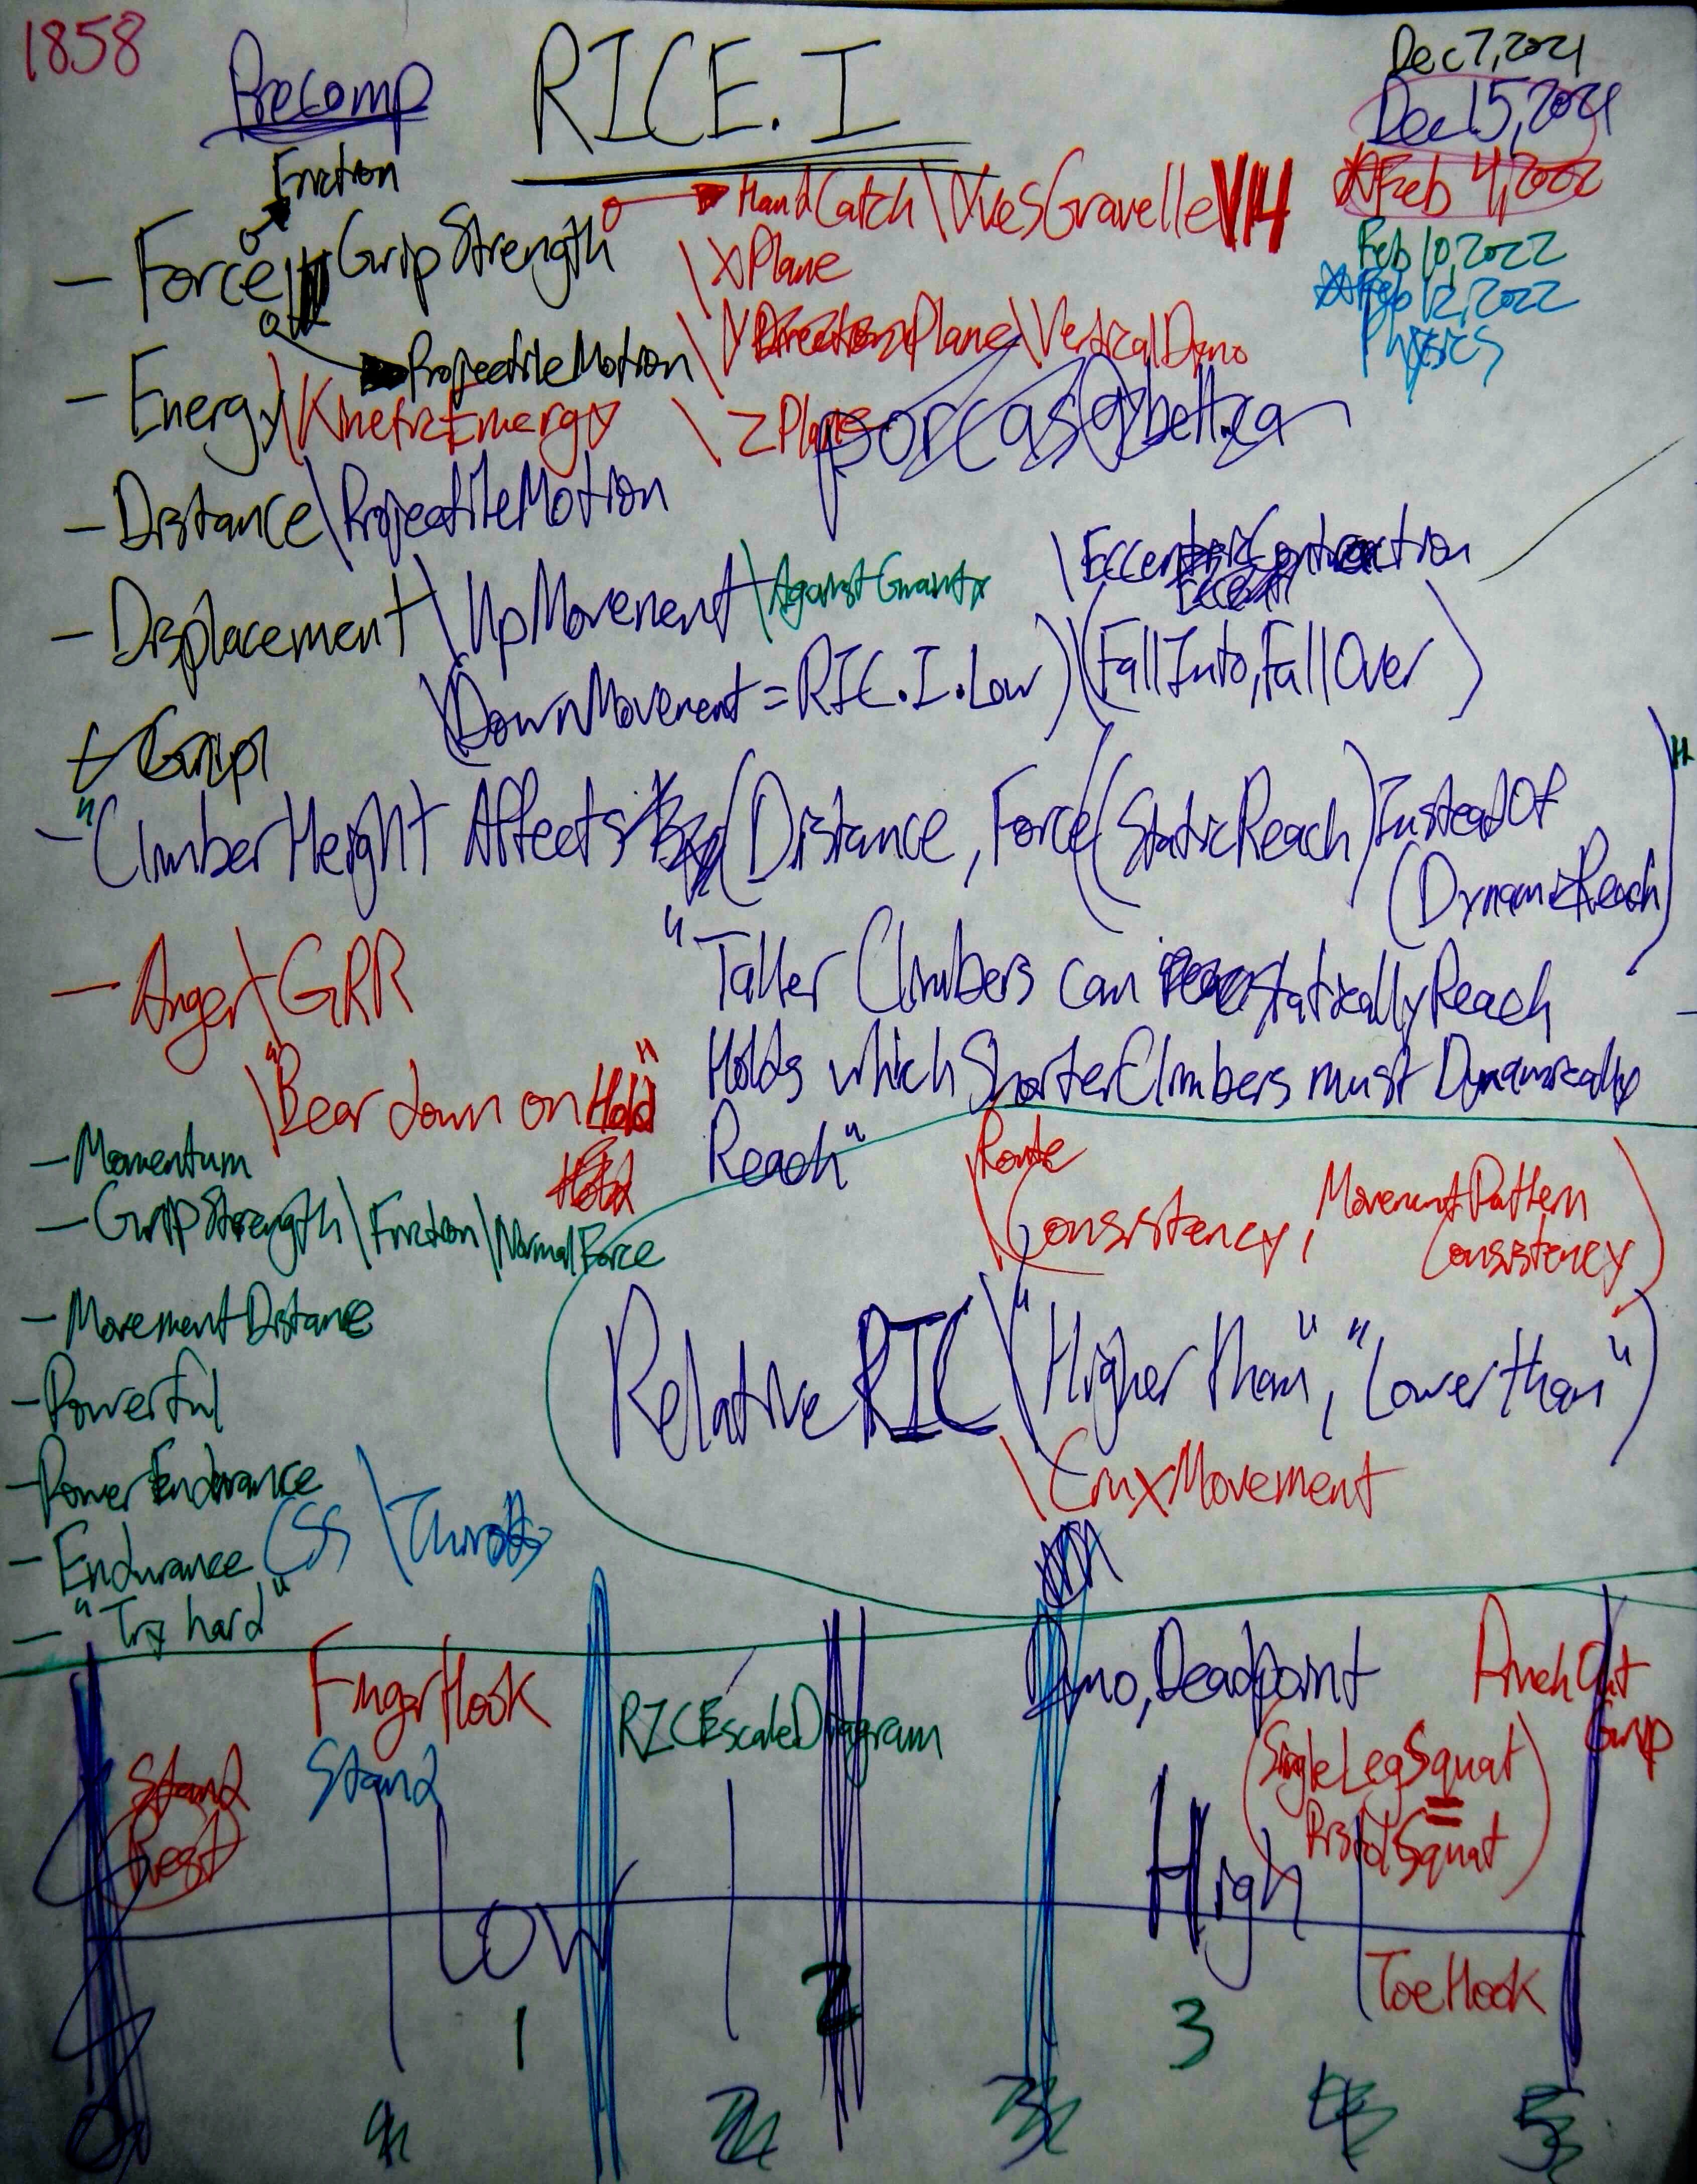 1858
Precomp
RICE.I
Dec 7, 2021
Dec 15, 2021
Feb 4, 2022
Feb 10, 2022
Feb 12, 2022
Physics
Friction
- Force \ GripStrength
HandCatch \ YvesGravelle V14
\ XPlane
\ Y Plane \ VerticalDyno
\ ZPlane
ProjectileMotion
- Energy \ KineticEnergy
- Distance \ ProjectileMotion
\ EccentricContraction
- Displacement \ UpMovement \ AgainstGravity
\ (DownMovement = RIC.I.Low) \ (FallInto, FallOver)
Grip
- "ClimberHeight Affects (Distance, Force (StaticReach) InsteadOf
(DynamicReach)"
"Taller Climbers can staticallyReach
Holds which ShorterClimbers must Dynamically
Reach"
- Anger \ GRR
\ "Bear down on Hold"
- Momentum
- GripStrength \ Friction \ NormalForce
- MovementDistance
- Powerful
- PowerEndurance
- Endurance CSS \
- "Try hard"
\ Route
(Consistency, MovementPattern
Consistency)
RelativeRIC \ ("Higher than", "Lower than")
\ CruxMovement
FingerHook
RICEscaleDiagram
Dyno, Deadpoint
Grip
Stand
Rest
Stand
(SingleLegSquat
=
PistolSquat)
Low
High
ToeHook
1
2
3
0
1
2
3
4
5